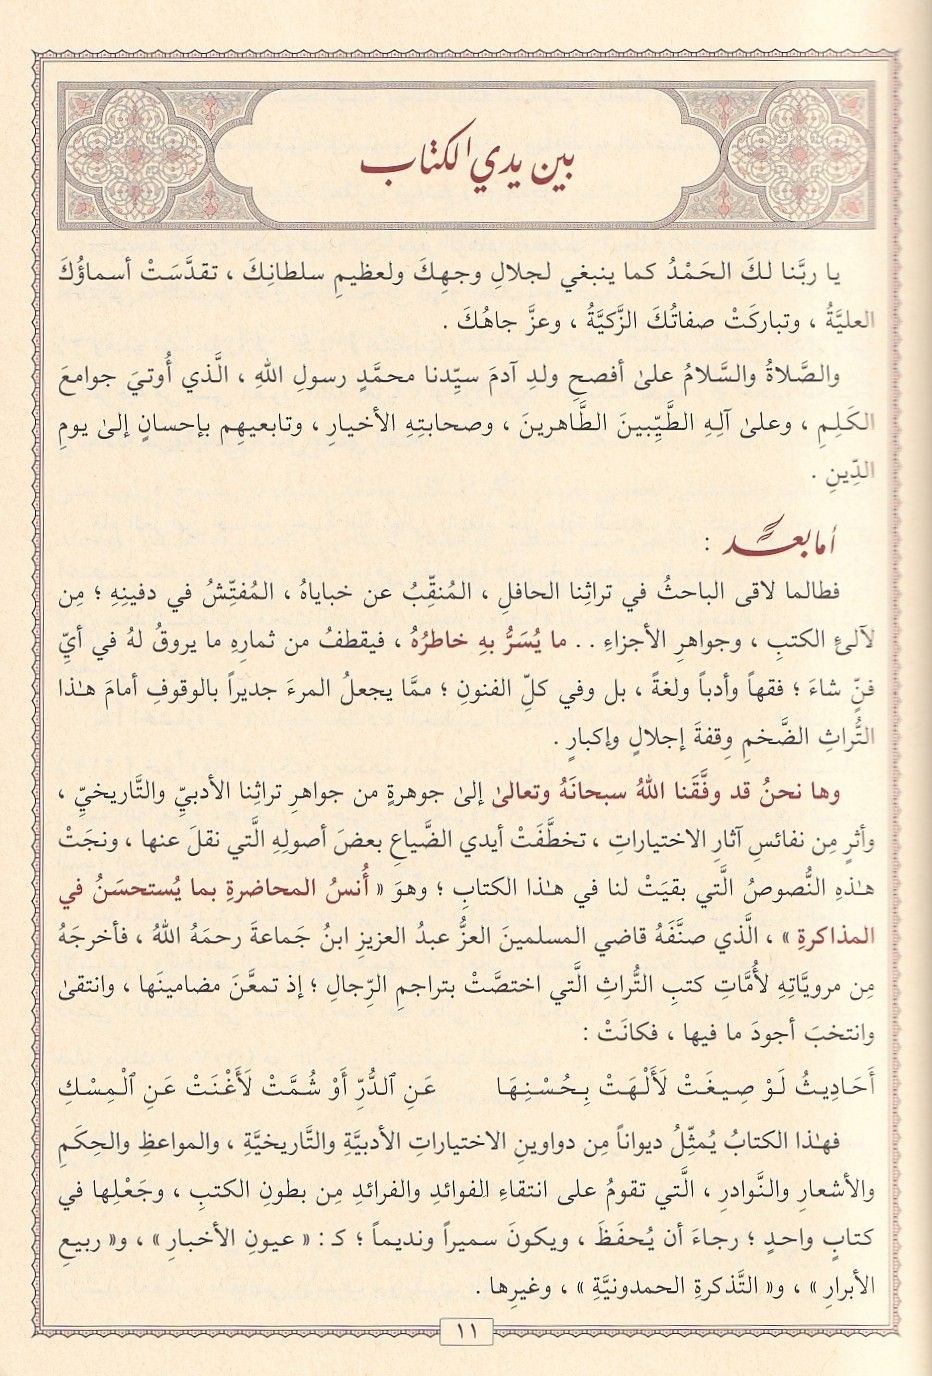 بين يدي الكتاب
يا ربَّنا لكَ الحَمْدُ كما ينبغي لجلالِ وجهِكَ ولعظيمِ سلطانِكَ ، تقدَّسَتْ أسماؤُكَ
العليَّةُ ، وتباركَتْ صفاتُكَ الزَّكيَّةُ ، وعزَّ جاهُكَ .
والصَّلاةُ والسَّلامُ علىٰ أفصحِ ولدِ آدمَ سيِّدنا محمَّدٍ رسولِ اللهِ ، الَّذي أُوتيَ جوامعَ
الكَلِمِ ، وعلىٰ آلِهِ الطَّيِّبينَ الطَّاهرينَ ، وصحابتِهِ الأخيارِ ، وتابعيهِم بإحسانٍ إلىٰ يومِ
الدِّينِ .
أما بعد :
فطالما لاقى الباحثُ في تراثِنا الحافلِ ، المُنقِّبُ عن خباياهُ ، المُفتِّشُ في دفينِهِ ؛ مِن
لآلئِ الكتبِ ، وجواهرِ الأجزاءِ . . ما يُسَرُّ بهِ خاطرُهُ ، فيقطفُ من ثمارِهِ ما يروقُ لهُ في أيِّ
فنٍّ شاءَ ؛ فقهاً وأدباً ولغةً ، بل وفي كلِّ الفنونِ ؛ ممَّا يجعلُ المرءَ جديراً بالوقوفِ أمامَ هـٰذا
التُّراثِ الضَّخمِ وِقفةَ إجلالٍ وإكبارٍ .
وها نحنُ قد وفَّقَنا اللهُ سبحانَهُ وتعالىٰ إلىٰ جوهرةٍ من جواهرِ تراثِنا الأدبيِّ والتَّاريخيِّ ،
وأثرٍ مِن نفائسِ آثارِ الاختياراتِ ، تخطَّفَتْ أيدي الضَّياعِ بعضَ أصولِهِ الَّتي نقلَ عنها ، ونجَتْ
هـٰذهِ النُّصوصُ الَّتي بقيَتْ لنا في هـٰذا الكتابِ ؛ وهوَ « أُنسُ المحاضرةِ بما يُستحسَنُ في
المذاكرةِ » ، الَّذي صنَّفَهُ قاضي المسلمينَ العزُّ عبدُ العزيزِ ابنُ جَماعةَ رحمَهُ اللهُ ، فأخرجَهُ
مِن مرويَّاتِهِ لأُمَّاتِ كتبِ التُّراثِ الَّتي اختصَّتْ بتراجمِ الرِّجالِ ؛ إذ تمعَّنَ مضامينَها ، وانتقىٰ
وانتخبَ أجودَ ما فيها ، فكانَتْ :
أَحَادِيثُ لَوْ صِيغَتْ لَأَلْهَتْ بِحُسْنِهَا عَنِ ٱلدُّرِّ أَوْ شُمَّتْ لَأَغْنَتْ عَنِ ٱلْمِسْكِ
فهـٰذا الكتابُ يُمثِّلُ ديواناً مِن دواوينِ الاختياراتِ الأدبيَّةِ والتَّاريخيَّةِ ، والمواعظِ والحِكَمِ
والأشعارِ والنَّوادرِ ، الَّتي تقومُ على انتقاءِ الفوائدِ والفرائدِ مِن بطونِ الكتبِ ، وجَعْلِها في
كتابٍ واحدٍ ؛ رجاءَ أن يُحفَظَ ، ويكونَ سميراً ونديماً ؛ كـ : « عيونِ الأخبارِ » ، و« ربيعِ
الأبرارِ » ، و« التَّذكرةِ الحمدونيَّةِ » ، وغيرِها .
١١